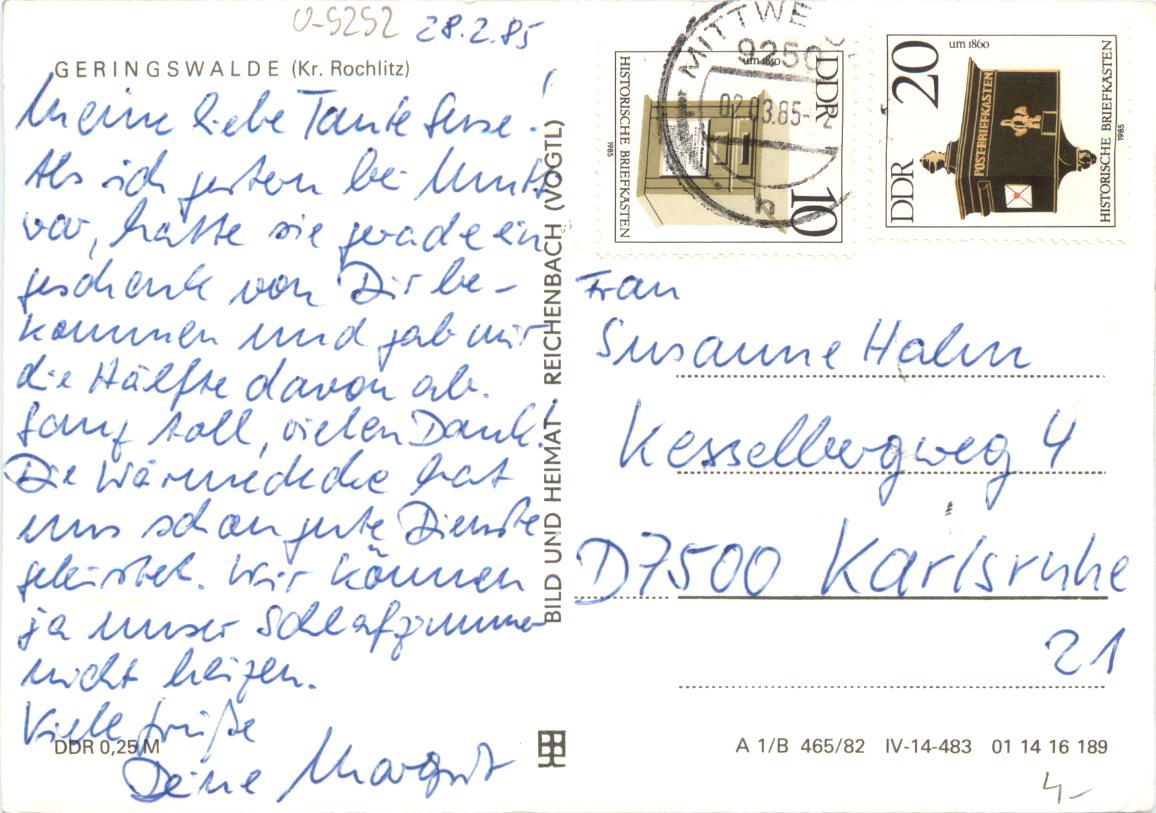 O-9252 28.2.85
GERINGSWALDE (Kr. Rochlitz)
Meine liebe Tante Suse!
Als ich gestern bei Mutti
war, hatte sie gerade ein
Geschenk von Dir be-
kommen und gab mir
die Hälfte davon ab.
Ganz toll, vielen Dank.
Die Wärmedecke hat
uns schon gute Dienste
geleistet. Wir können
ja unser Schlafzimmer
nicht heizen.
Viele Grüße
Deine Margrit
DDR 0,25 M
BILD UND HEIMAT REICHENBACH (VOGTL)
MITTWE
9250
02.03.85-12
um 1850
DDR 10
HISTORISCHE BRIEFKASTEN
1985
um 1860
DDR 20
POST-BRIEFKASTEN
HISTORISCHE BRIEFKÄSTEN
1985
Frau
Susanne Hahn
Kesselbergweg 4
D7500 Karlsruhe
21
A 1/B 465/82 IV-14-483 01 14 16 189
4,-